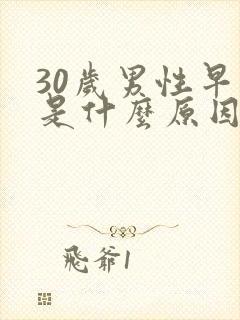 30歲男性早
是什麼原因
飛爺1